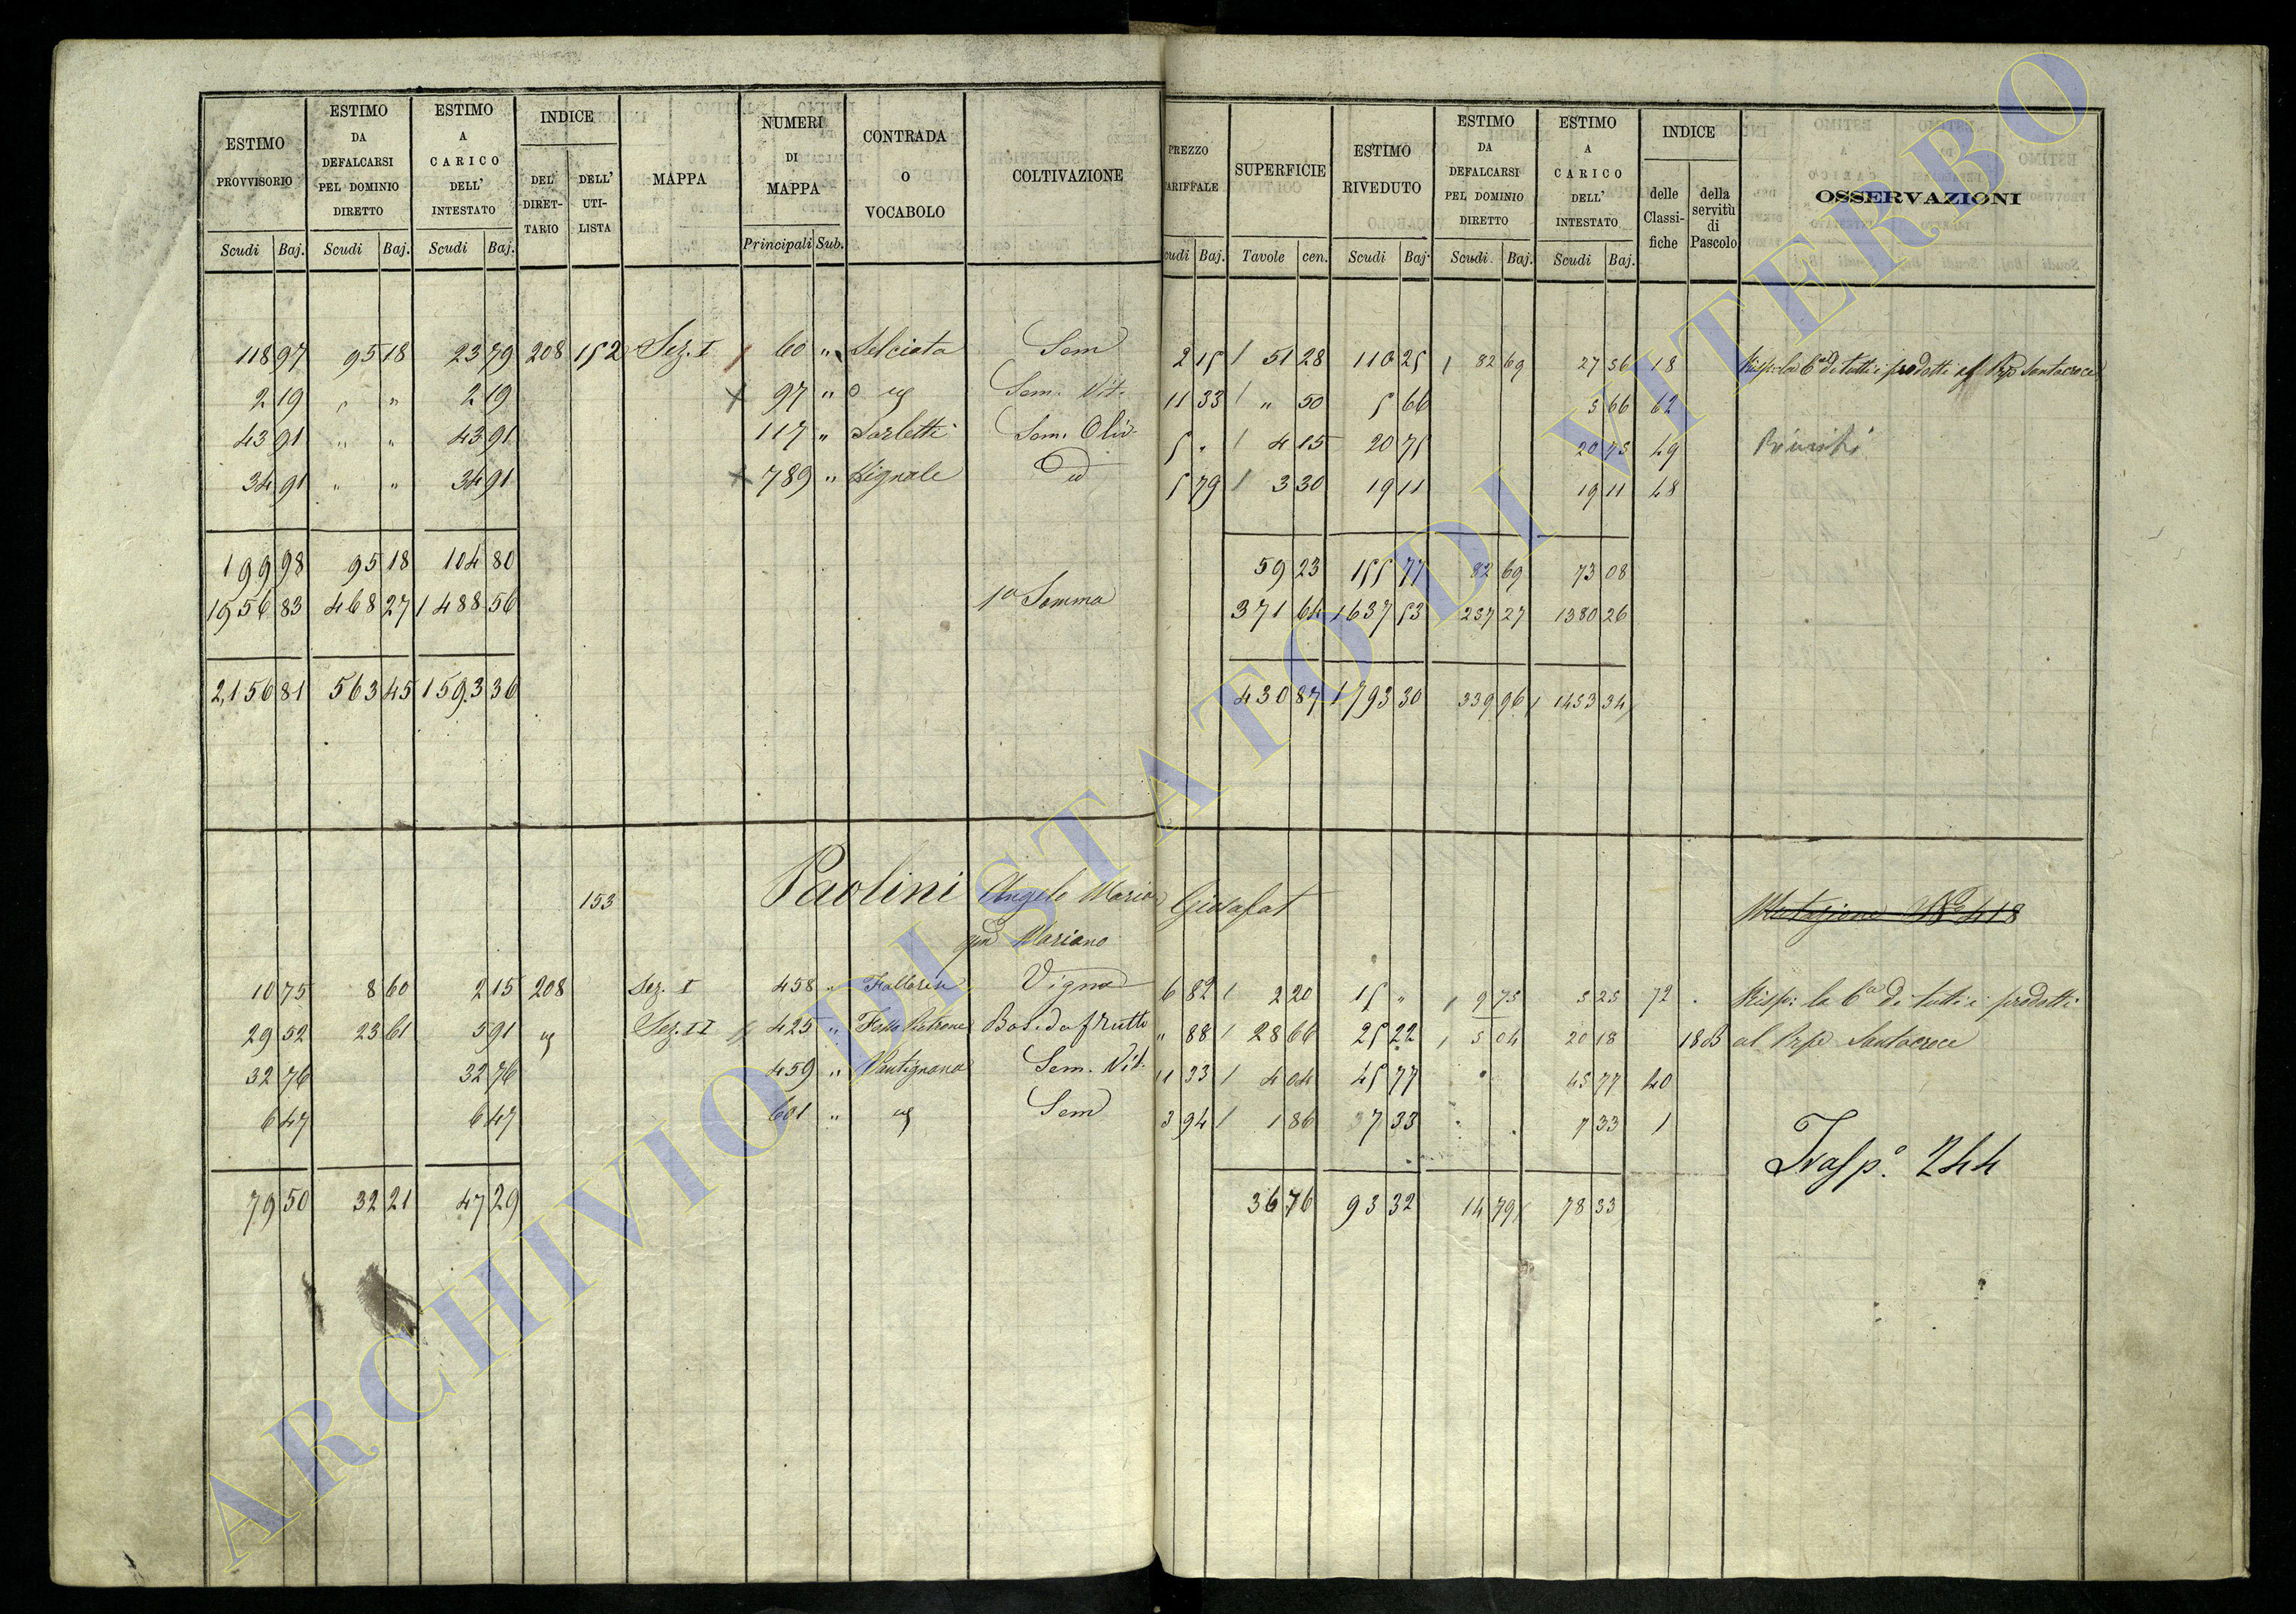 ESTIMO PROVVISORIO | ESTIMO DA DEFALCARSI PEL DOMINIO DIRETTO | ESTIMO A CARICO DELL' INTESTATO | INDICE | MAPPA | NUMERI DI MAPPA | CONTRADA O VOCABOLO | COLTIVAZIONE | PREZZO TARIFFALE | SUPERFICIE | ESTIMO RIVEDUTO | ESTIMO DA DEFALCARSI PEL DOMINIO DIRETTO | ESTIMO A CARICO DELL' INTESTATO | INDICE | OSSERVAZIONI
DEL DIRET-TARIO | DELL' UTI-LISTA | delle Classi-fiche | della servitù di Pascolo
Scudi | Baj. | Scudi | Baj. | Scudi | Baj. | Principali | Sub. | cudi | Baj. | Tavole | cen. | Scudi | Baj. | Scudi | Baj. | Scudi | Baj.
118 97 | 95 18 | 23 79 | 208 | 152 | Sez. I | 60 " | Selciata | Sem | 2 15 | 51 28 | 110 25 | 82 69 | 27 56 | 18 | Risp: la 6a di tutti i prodotti al Prpe Santacroce
2 19 | " " | 2 19 | 97 " | Sem. Vit. | 11 33 | " 50 | 5 66 | 5 66 | 62
43 91 | " " | 43 91 | 117 " | Sarletti | Sem. Oliv. | 5 " | 4 15 | 20 75 | 20 75 | 49
34 91 | " " | 34 91 | 789 " | Vignale | Id | 5 79 | 3 30 | 19 11 | 19 11 | 48
199 98 | 95 18 | 104 80 | 59 23 | 155 77 | 82 69 | 73 08
1956 83 | 468 27 | 1488 56 | 1a Somma | 371 64 | 1637 53 | 257 27 | 1380 26
2,156 81 | 563 45 | 1593 36 | 430 87 | 1793 30 | 339 96 | 1453 34
153 | Paolini Angelo Maria Giosafat | Mutazione No 418
qm Mariano
10 75 | 8 60 | 2 15 | 208 | Sez. I | 458 " | Vigna | 6 82 | 2 20 | 15 " | 9 75 | 5 25 | 72 | Risp: la 6a di tutti i prodotti
29 52 | 23 61 | 5 91 | Sez. II | 425 " | Bos. da frutto | " 88 | 28 66 | 25 22 | 5 04 | 20 18 | 18 B | al Prpe Santacroce
32 76 | 32 76 | 459 " | Vantignana | Sem. Vit. | 11 33 | 4 04 | 45 77 | 45 77 | 40
6 47 | 6 47 | 601 " | Sem | 3 94 | 1 86 | 7 33 | 7 33 | 1
Trasp.o 244
79 50 | 32 21 | 47 29 | 36 76 | 93 32 | 14 79 | 78 53
ARCHIVIO DI STATO DI VITERBO